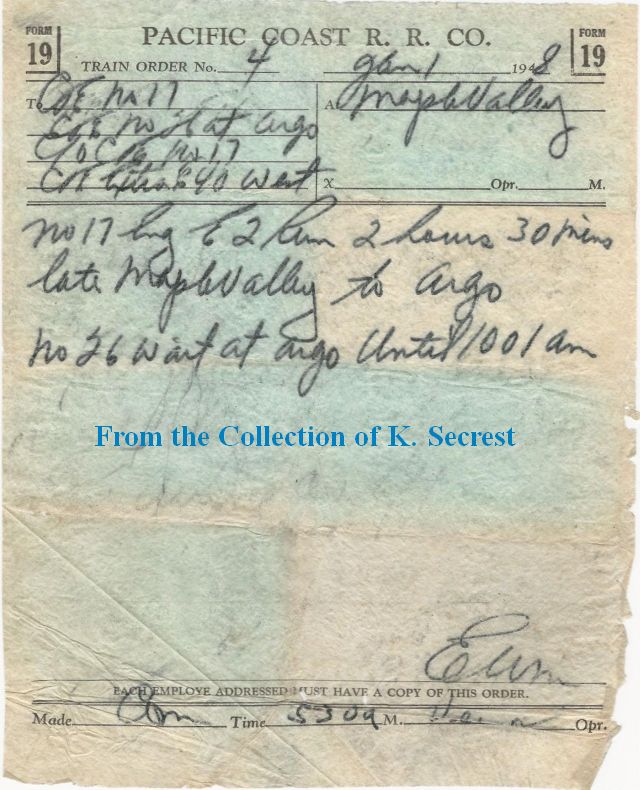 FORM 19
PACIFIC COAST R. R. CO.
FORM 19
TRAIN ORDER No. 4 Jan 1 1948
To C&E No 17 A Maple Valley
C&E No 26 at Argo
No 17
Extra E 40 West
X Opr. M.
No 17 Eng E 2 Run 2 hours 30 mins
late Maple Valley to Argo
No 26 wait at Argo Until 1001 am
From the Collection of K. Secrest
EACH EMPLOYE ADDRESSED MUST HAVE A COPY OF THIS ORDER.
Made Com Time 530a M. Opr.